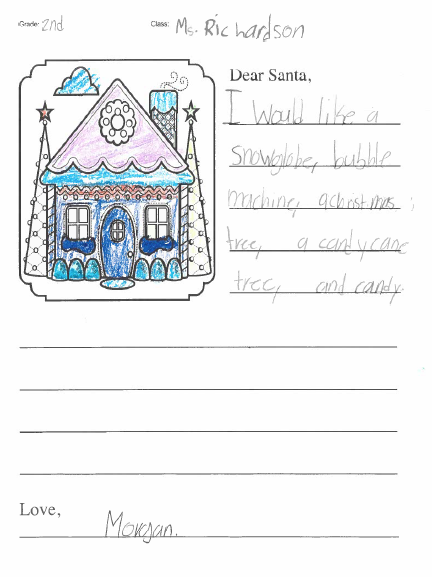 Grade: 2nd Class: Ms. Richardson
Dear Santa,
I Would like a
snowglobe, bubble
machine, achristmas
tree, a candy cane
tree, and candy.
Love,
Morgan.